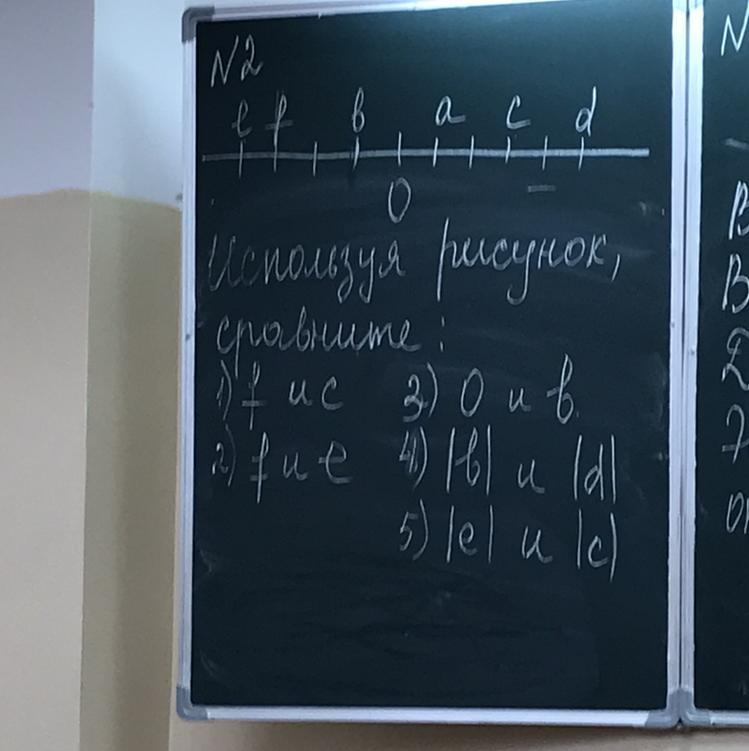 N2
e f b a c d
0
Используя рисунок,
сравните:
1) f и c 3) 0 и b
2) f и e 4) |b| и |d|
5) |e| и |c|
N
В
В